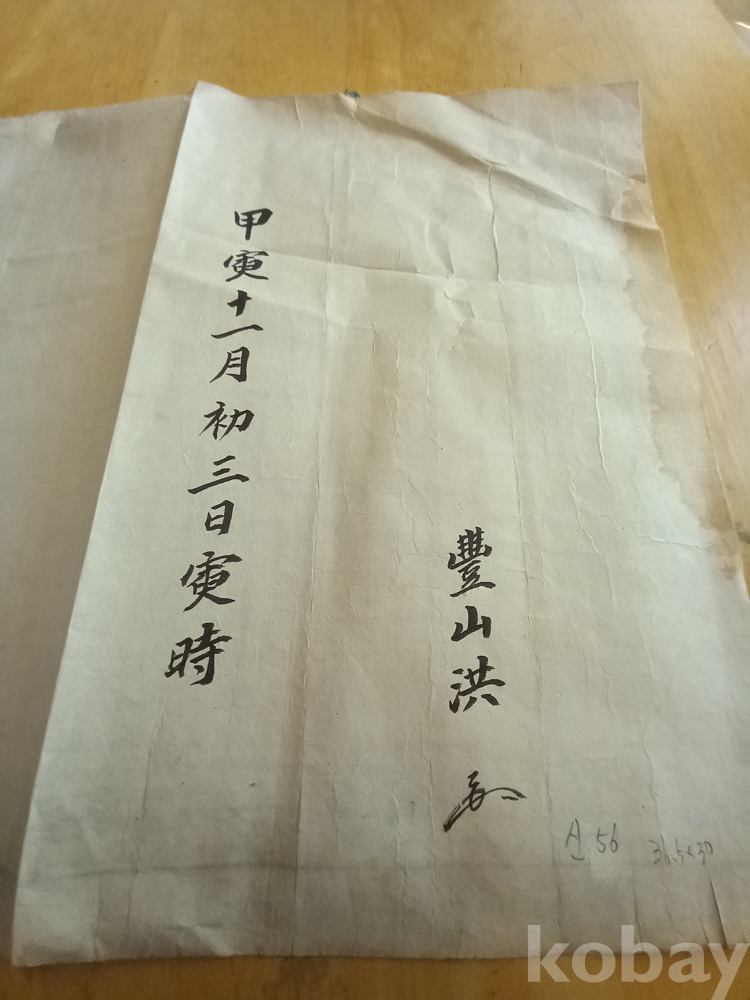 豐山洪
甲寅十一月初三日寅時
56
36.5×30
kobay